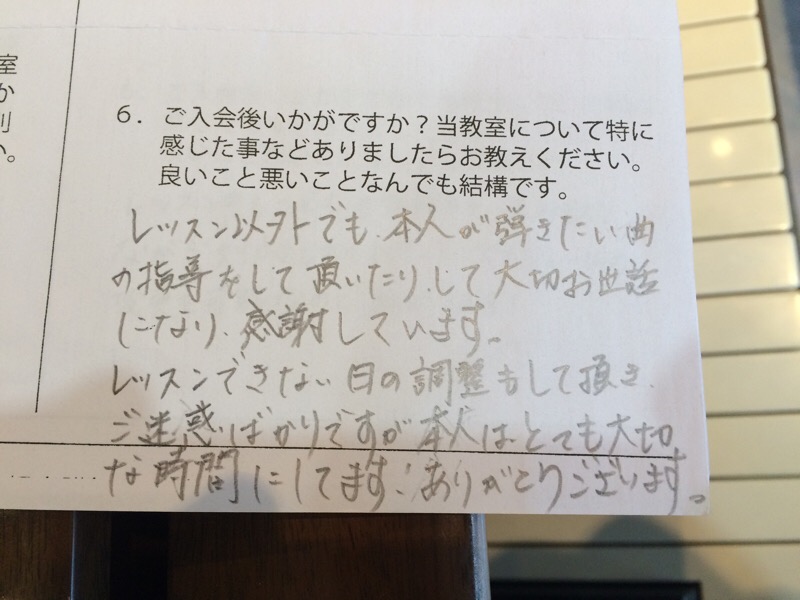 室
か
別
い。
6．ご入会後いかがですか？当教室について特に
感じた事などありましたらお教えください。
良いこと悪いことなんでも結構です。
レッスン以外でも、本人が弾きたい曲
の指導をして頂いたりして大切お世話
になり、感謝しています。
レッスンできない日の調整もして頂き、
ご迷惑ばかりですが本人はとても大切
な時間にしてます！ありがとうございます。